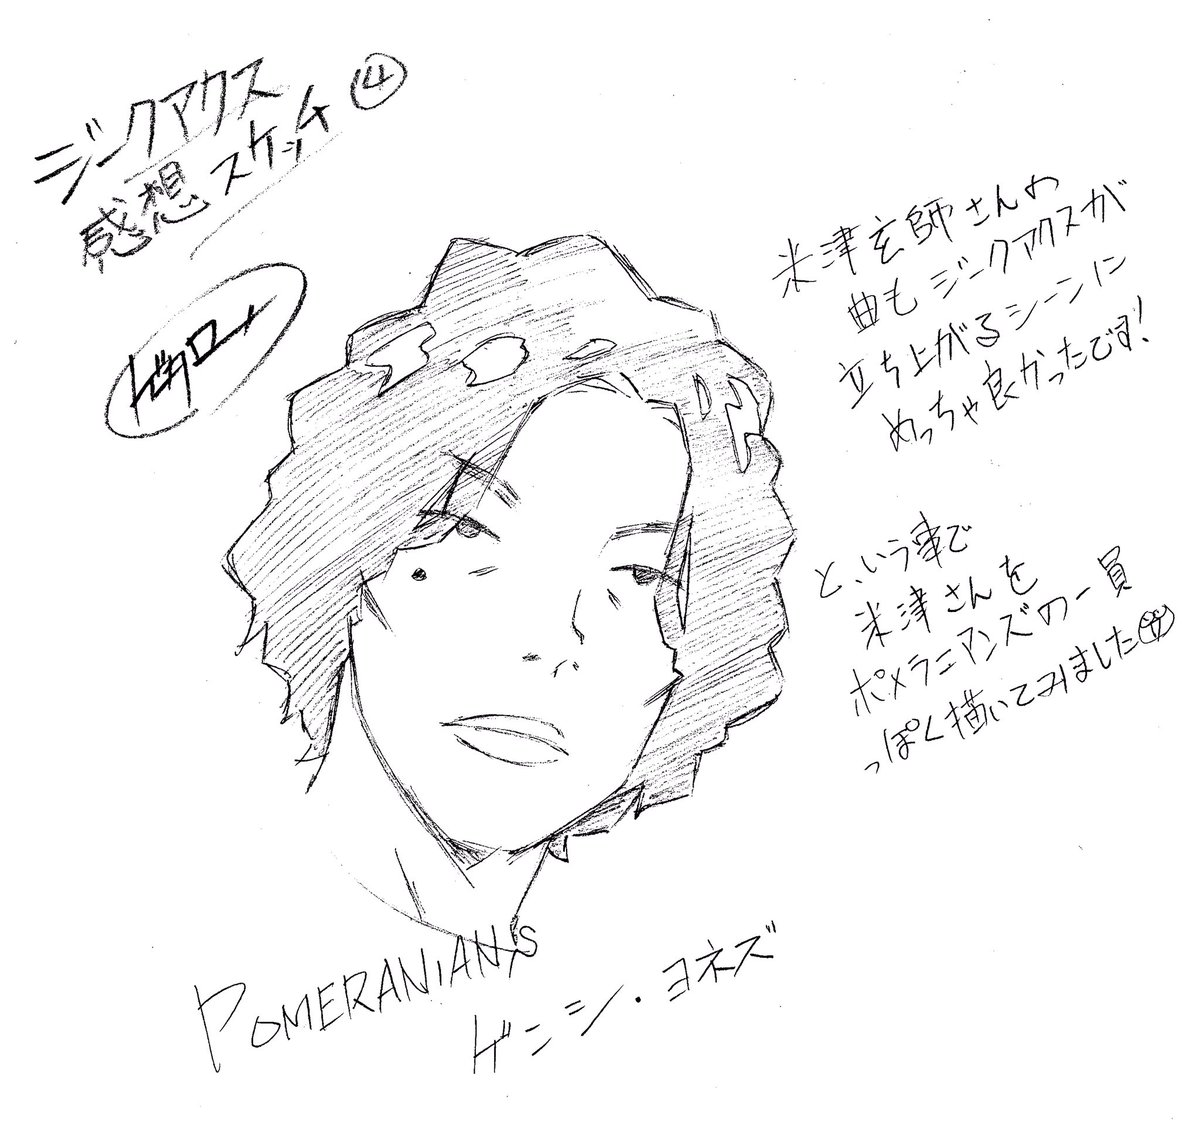 ジークアクス
感想スケッチ④
米津玄師さんの
曲もジークアクスが
立ち上がるシーンに
めっちゃ良かったです!
と、いう事で
米津さんを
ポメラニアンズの一員
っぽく描いてみました
POMERANIANS
ゲンシ・ヨネズ